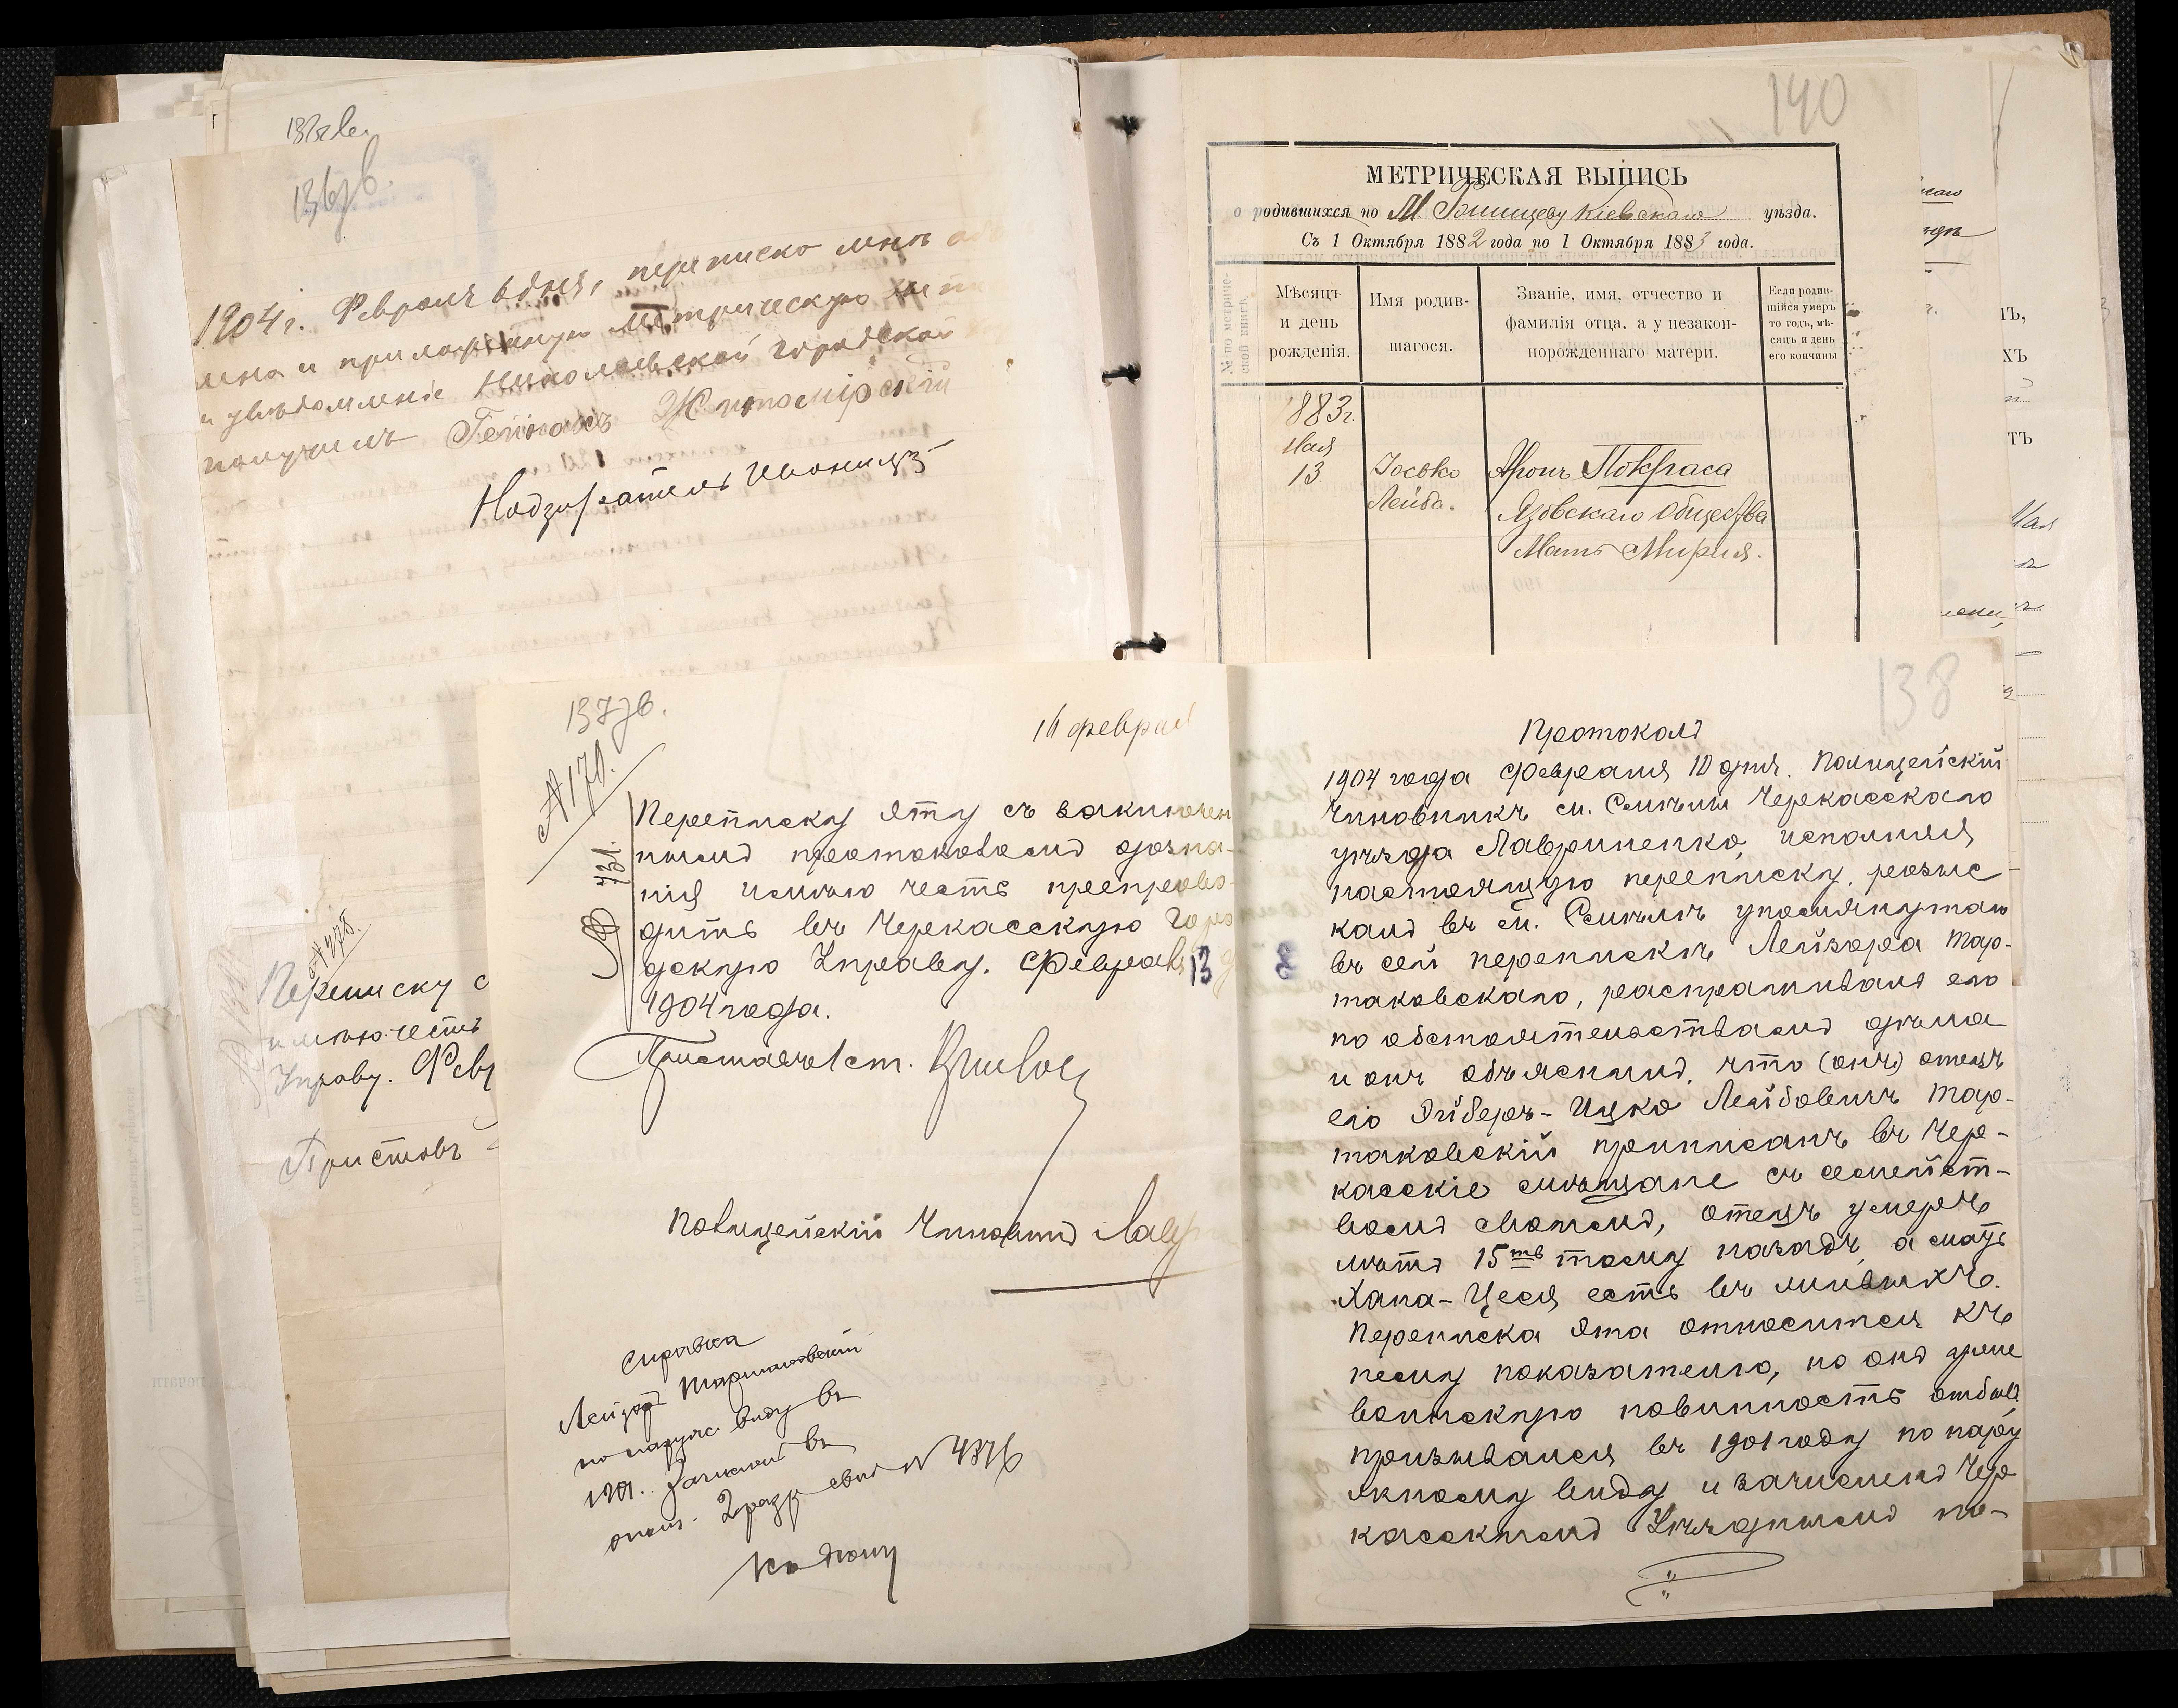 136зв.
1904 г. Февраля 6 дня, переписко мнѣ
и приложенную Метрическую
и увѣдомленіе Николаевской городской
получилъ Гейнахъ Житомірскій
Надзиратель
140
МЕТРИЧЕСКАЯ ВЫПИСЬ
о родившихся по М Кіевскаго уѣзда.
Съ 1 Октября 1882 года по 1 Октября 1883 года.
№ по метриче-
ской книгѣ.
Мѣсяцъ
и день
рожденія.
Имя родив-
шагося.
Званіе, имя, отчество и
фамилія отца, а у незакон-
норожденнаго матери.
Если родив-
шійся умеръ
то годъ, мѣ-
сяцъ и день
его кончины
1883 г.
Мая
13.
Іосько
Лейба.
Аронъ Покраса
Язовскаго Общества
Мать Мирия.
137зв.
16 феврал
№ 170.
№ 731.
Переписку эту съ заключен
нымъ протоколомъ дозна-
нія имѣю честь препрово-
дить въ Черкасскую Горо
дскую Управу. Февраля 13 д
1904 года.
Приставъ 1 ст.
Полицейскій Чиновникъ Лавр
Справка
Лейзоръ Тартаковский
по наружн. виду въ
1901. Зачислен въ
ополч. 2 разр свид № 4876
Къ дѣлу
№ 478.
Переписку с
имѣю честь
Управу. Февр
Приставъ
138
Протоколъ
1904 года Февраля 10 дня. Полицейскій
Чиновникъ м. Смѣлы Черкасскаго
уѣзда Лавриненко, исполняя
настоящую переписку, розыс-
калъ въ м. Смѣлѣ упомянутаго
въ сей перепискѣ Лейзора Тар-
таковскаго, распрашивалъ его
по обстоятельствамъ дѣла
и онъ объяснилъ, что (онъ) отецъ
его Эйберъ-Ицко Лейбовичъ Тар-
таковскій приписанъ въ Чер-
касскіе мѣщане съ семейст-
вомъ своимъ, отецъ умеръ
лѣтъ 15ть тому назадъ, а мать
Хана-Цеся есть въ живыхъ.
Переписка эта относится къ
нему показателю, но онъ уже
воинскую повинность отбылъ
призывался въ 1901 году по нару
жному виду и зачисленъ Чер
касскимъ Уѣзднымъ по-